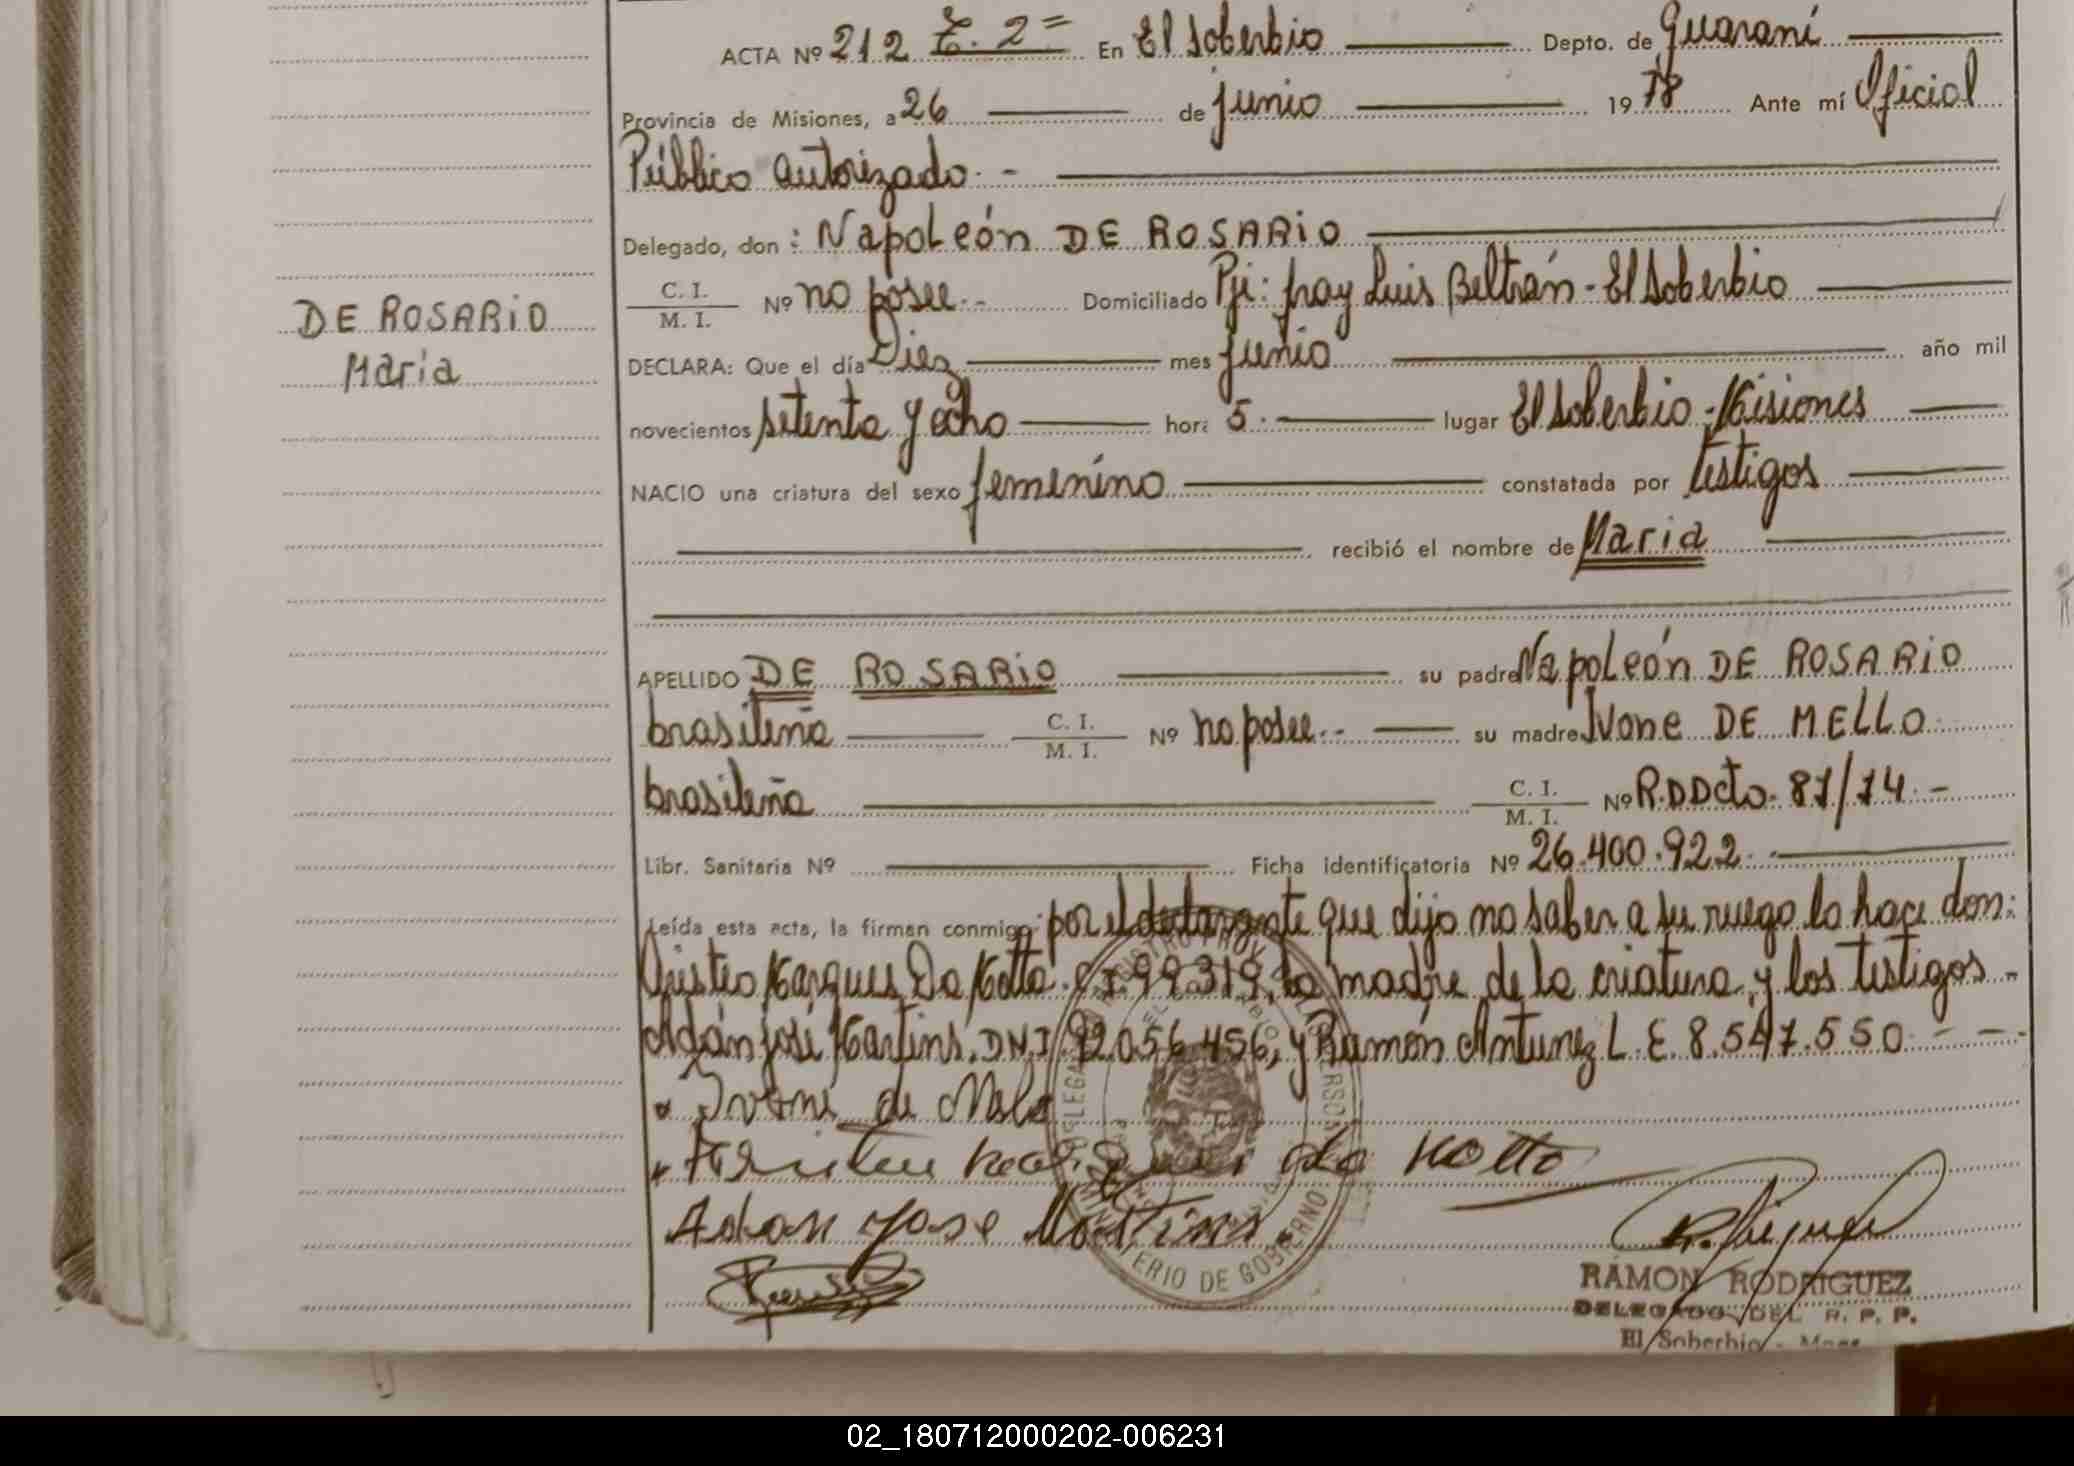 ACTA Nº 212 T. 2= En El Soberbio Depto. de Guaraní
Provincia de Misiones, a 26 de junio 1978 Ante mí Oficial
Público autorizado.-
Delegado, don: Napoleón DE ROSARiO
C. I. / M. I. Nº no posee.- Domiciliado Pje: fray Luis Beltrán - El Soberbio
DE ROSARiO
Maria
DECLARA: Que el día Diez mes junio año mil
novecientos setenta y ocho hora 5. lugar El Soberbio - Misiones
NACIO una criatura del sexo femenino constatada por testigos
recibió el nombre de Maria
APELLIDO DE ROSARiO su padre Napoleón DE ROSARiO
brasileña C. I. / M. I. Nº no posee.- su madre Ivone DE MELLO
brasileña C. I. / M. I. Nº R.D Dcto. 87/74.-
Libr. Sanitaria Nº Ficha identificatoria Nº 26.400.922.-
Leída esta acta, la firman conmigo por el declarante que dijo no saber a su ruego lo hace don:
Marques Da Motta. C I 99319, la madre de la criatura, y los testigos -
Adán José Martins. D.N.I. 92.056.456, y Ramón Antunez L. E. 8.547.550 - -
de
da Motta
Adan Jose Martins.
REGISTRO PROVINCIAL DE LAS PERSONAS
MINISTERIO DE GOBIERNO
RAMON RODRIGUEZ
DELEGADO DEL R. P. P.
El Soberbio - Mnes
02_180712000202-006231